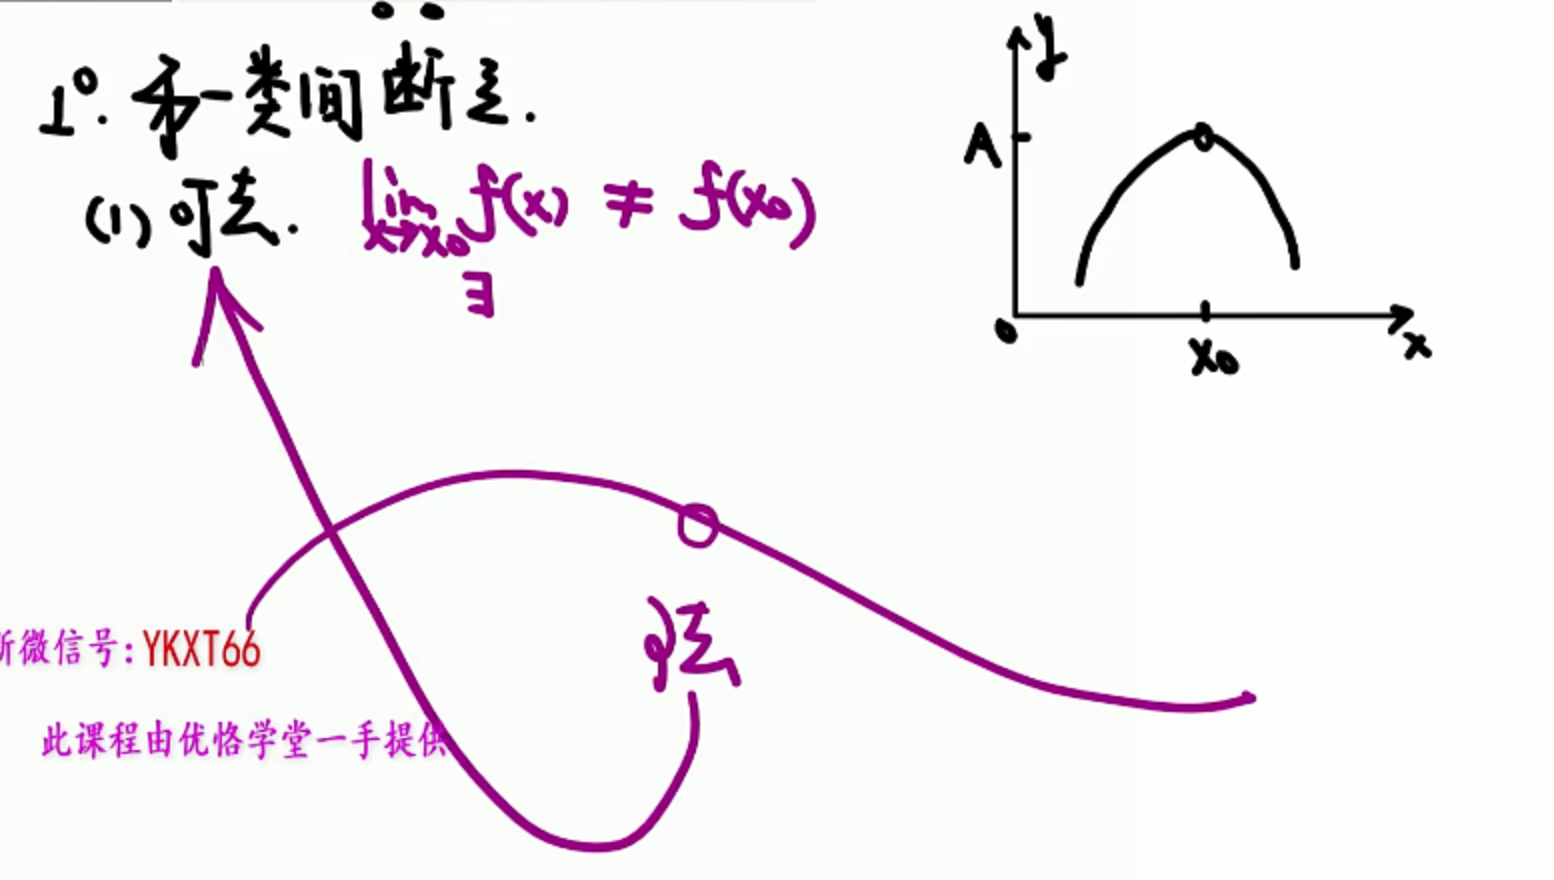 1°. 第一类间断点.
(1) 可去. lim f(x) ≠ f(x₀)
x→x₀
∃
y
A
0
x₀
x
可去
新微信号:YKXT66
此课程由优恪学堂一手提供